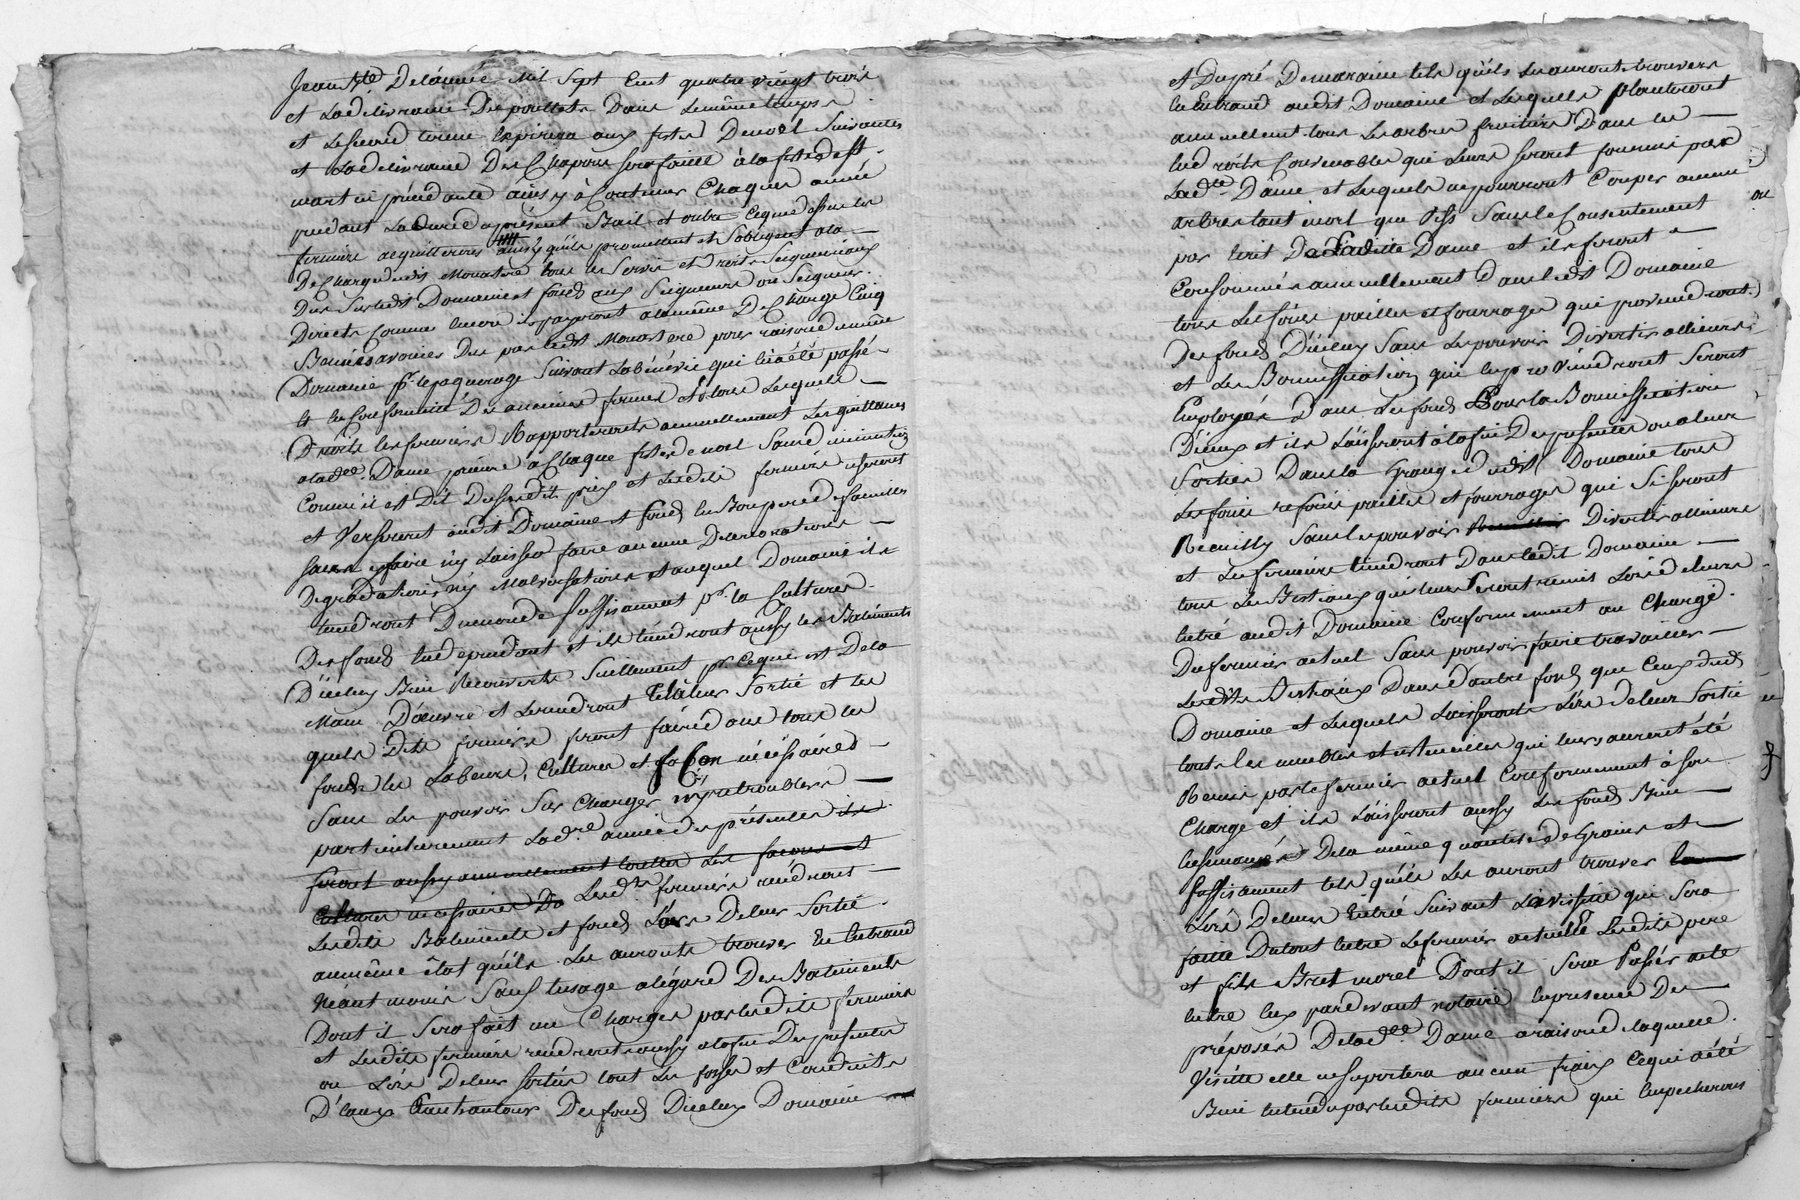 Jean Bte Delannée Mil Sept Cent quatre vingt trois
et La délivrance Des poullets Dans Le même temps
et Le second terme Expirera aux festes De noel Suivantes
et La délivrance Des Chapons Sera faitte à la feste de St
martin précédante ainsy à Continuer Chaque année
pendant La Durée du présent Bail et outre Ce que dessus les
fermiers acquitteront ainsy qu'ils promettent et S'obligent a la
Décharge dudit Monastère tous les Servis et droits Seigneuriaux
Dus Sur Ledt Domaine et fonds aux Seigneurs ou Seigneur
Directs Comme encore ils payeront a la même Décharge Cinq
Bennes avoines Dus par Ledt Monastere pour raison du même
Domaine pr. le paquerage Suivant La bénévis qui lui a été passé
et En Conformité Des anciennes fermes et tous Lesquels
Droits Les fermiers Rapporteront annuellement Les quittances
a lade Dame prieure a Chaque feste de noel Sans diminution
Comme il est Dit Du Susdit prix et Lesdits fermiers useront
et Verseront audit Domaine et fonds En Bon pere de famille
Sans y faire ny Laisser faire aucune Détériorations
Dégradations ny Malversations et auquel Domaine ils
tiendront Du monde Suffisament pr. la Cultures
Des fonds En dependant et ils tiendront aussy les Batiments
D'iceluy Bien Recouverts Seullement pr. Ce qui est De la
Main D'œuvre et Les rendront Tels à leur Sortie et les
quels Dits fermiers feront faire dans tous les
fonds les Labeurs, Cultures et façon nécéssaires
Sans Les pouvoir Sur Charger ny retroubler
particulierement Lad.re année des présentes ils
feront aussy annuellement touttes Les façons et
Cultures necessaires Du Lesds fermiers rendront
Lesdits Batiments et fonds Lors De leur Sortie
au même état qu'ils Les auront trouver En Entrand
Néant moins Sauf lusage a légard Des Batiments
Dont il Sera fait un Charger par lesdits fermiers
et Lesdits fermiers rendront aussy a la fin Des présentes
ou Lors De leur Sortie tout Les fossés et Conduits
D'eaux Des fonds D'icelux Domaine
et Du pré De maraine tels qu'ils Les auront trouvers
En Entrand audit Domaine et Lesquels planteront
annuellement tous Les arbres fruitiers Dans les
Endroits Convenables qui Leurs Seront fournis par
Lade Dame et Lesquels ne pourront Couper aucun
arbres tant mort que Vifs Sans le Consentement
par Ecrit De Ladite Dame et ils feront
Consommés annuellement Dans Ledit Domaine
tous Les foins pailles et fourrages qui proviendront
Des fonds D'icelux Sans Les pouvoir Divertir allieurs
et Les Bonnification qui En proviendront Seront
Employés Dans Les fonds Pour la Bonnification
D'iceux et ils Laisseront à la fin Des presentes ou a leur
Sorties Dans la Grange dudit Domaine tous
Les foins refoins pailles et fourrages qui S'i Seront
Recuilly Sans Les pouvoir Divertir allieurs
et Les fermiers tiendront Dans Ledit Domaine
tous Les Bestiaux qui leurs Seront remis Lors de leur
Entré audit Domaine Conformement au Chargé
Du fermier actuel Sans pouvoir faire travailler
Lesdts Bestiaux Dans d'autre fonds que Ceux dudt
Domaine et Lesquels Laisseront Lors de leur Sortie
touts les meubles et ustencilles qui leurs auront été
Remis par le fermier actuel Conformement à Son
Charge et ils Laisseront aussy Les fonds Bien
Ensemancés De la même quantité de Grains et
Suffisament tels qu'ils Les auront trouver
Lors De leurs Entré Suivant La vissitte qui Sera
faitte Du tout Entre Le fermier actuelle Lesdits pere
et fils Bret morel Dont il Sera Passés acte
Entre Eux par devant notaire En presence Des
préposés De lade Dame a raison de laquelle
Visitte elle ne Suportera aucun fraix Ce qui a été
Bien Entendu par lesdits fermiers qui Empecheront